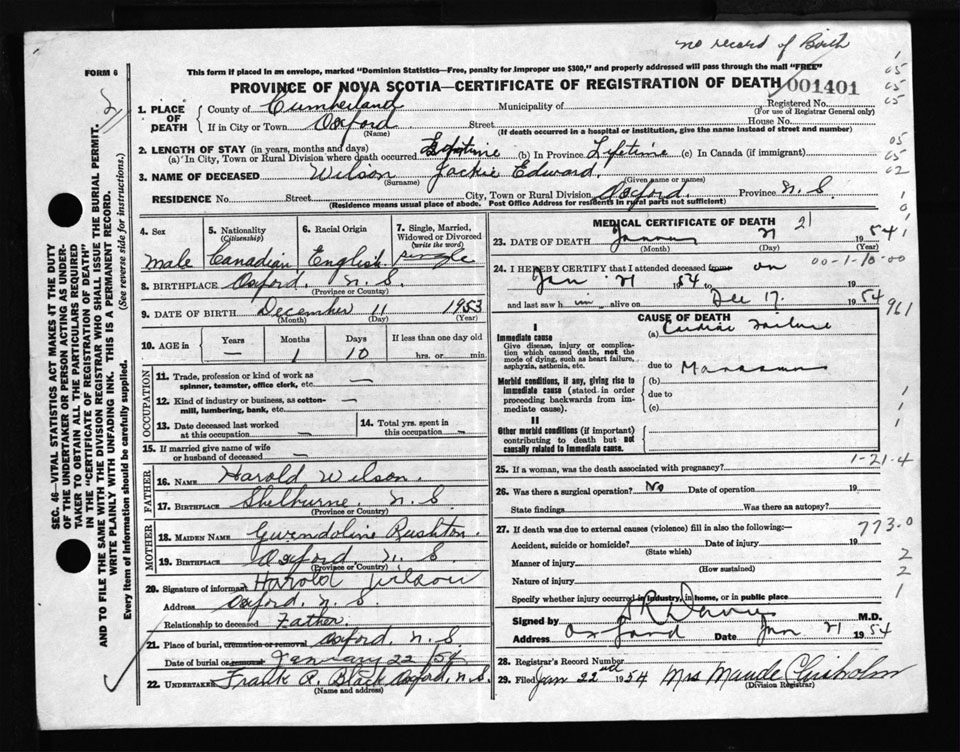 no record of Birth
FORM 6
This form if placed in an envelope, marked "Dominion Statistics—Free, penalty for improper use $300," and properly addressed will pass through the mail "FREE"
PROVINCE OF NOVA SCOTIA—CERTIFICATE OF REGISTRATION OF DEATH 001401
1. PLACE OF DEATH
County of Cumberland Municipality of Registered No.
(For use of Registrar General only)
If in City or Town Oxford Street House No.
(Name) (If death occurred in a hospital or institution, give the name instead of street and number)
2. LENGTH OF STAY (in years, months and days)
(a) In City, Town or Rural Division where death occurred Lifetime (b) In Province Lifetime (c) In Canada (if immigrant)
3. NAME OF DECEASED Wilson Jackie Edward.
(Surname) (Given name or names)
RESIDENCE No. Street City, Town or Rural Division Oxford. Province N. S
(Residence means usual place of abode. Post Office Address for residents in rural parts not sufficient)
4. Sex 5. Nationality (Citizenship) 6. Racial Origin 7. Single, Married, Widowed or Divorced (write the word)
Male Canadian English. Single
8. BIRTHPLACE Oxford. N. S.
(Province or Country)
9. DATE OF BIRTH December 11 1953
(Month) (Day) (Year)
10. AGE in Years Months Days If less than one day old
— 1 10 hrs. or min.
OCCUPATION
11. Trade, profession or kind of work as spinner, teamster, office clerk, etc. —
12. Kind of industry or business, as cotton-mill, lumbering, bank, etc. —
13. Date deceased last worked at this occupation —
14. Total yrs. spent in this occupation —
15. If married give name of wife or husband of deceased —
FATHER
16. NAME Harold Wilson.
17. BIRTHPLACE Shelburne. N. S
(Province or Country)
MOTHER
18. MAIDEN NAME Gwendoline Rushton.
19. BIRTHPLACE Oxford N. S.
(Province or Country)
20. Signature of informant Harold Wilson
Address Oxford. N. S.
Relationship to deceased Father.
21. Place of burial, cremation or removal Oxford. N. S
Date of burial or removal January 22 /54
22. UNDERTAKER Frank R. Black Oxford, N. S.
(Name and address)
MEDICAL CERTIFICATE OF DEATH 21
23. DATE OF DEATH 21 1954
(Month) (Day) (Year)
24. I HEREBY CERTIFY that I attended deceased from on 00-1-10-00
Jan 21 1954 to 19
and last saw h im alive on Dec 17. 1954
961
CAUSE OF DEATH
I
Immediate cause
Give disease, injury or complication which caused death, not the mode of dying, such as heart failure, asphyxia, asthenia, etc.
(a) Cardiac Failure
due to Marasmus
Morbid conditions, if any, giving rise to immediate cause (stated in order proceeding backwards from immediate cause).
(b)
due to
(c)
II
Other morbid conditions (if important) contributing to death but not causally related to immediate cause.
25. If a woman, was the death associated with pregnancy? 1-21-4
26. Was there a surgical operation? No Date of operation 19
State findings Was there an autopsy?
27. If death was due to external causes (violence) fill in also the following:— 773.0
Accident, suicide or homicide? Date of injury 19
(State which)
Manner of injury
(How sustained)
Nature of injury
Specify whether injury occurred in industry, in home, or in public place
Signed by M.D.
Address Oxford Date Jan 21 1954
28. Registrar's Record Number
29. Filed Jan 22nd 1954 Mrs Maude Chisholm
(Division Registrar)
SEC. 46—VITAL STATISTICS ACT MAKES IT THE DUTY
OF THE UNDERTAKER OR PERSON ACTING AS UNDERTAKER TO OBTAIN ALL THE PARTICULARS REQUIRED
IN THE "CERTIFICATE OF REGISTRATION OF DEATH"
AND TO FILE THE SAME WITH THE DIVISION REGISTRAR WHO SHALL ISSUE THE BURIAL PERMIT.
WRITE PLAINLY WITH UNFADING INK. THIS IS A PERMANENT RECORD.
Every item of information should be carefully supplied. (See reverse side for instructions.)